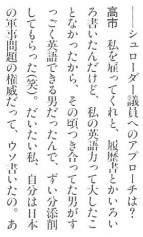 ――シュローダー議員へのアプローチは？
高市　私を雇ってくれと、履歴書とかいろい
ろ書いたんだけど、私の英語力って大したこ
となかったから、その頃つき合ってた男がす
っごく英語できる男だったんで、ずい分添削
してもらった(笑)。だいたい私、自分は日本
の軍事問題の権威だって、ウソ書いたの。あ